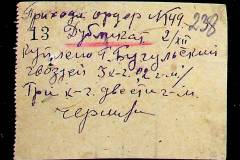 Приходн ордер №149
238
13 Дубликат 2/XII
куплено г. Бугульский
гвоздей 3 к-г. 02 г-м/
Три к-г. двести г-м.